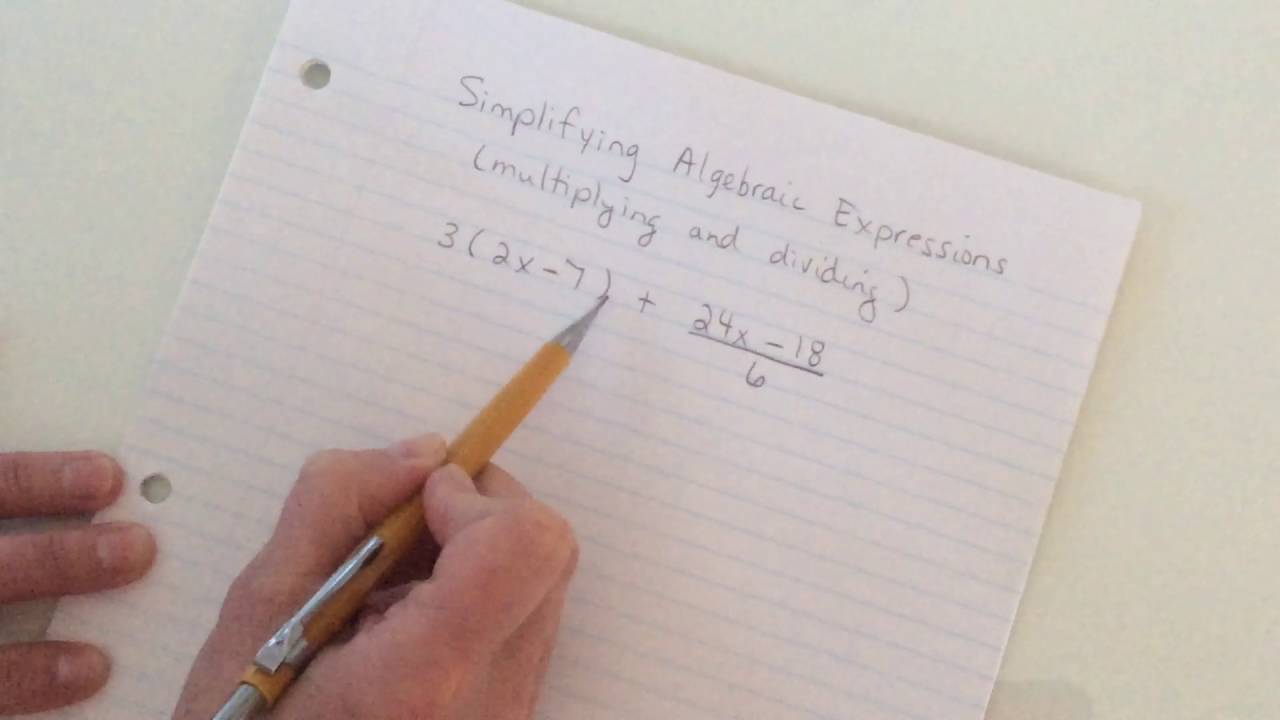 Simplifying Algebraic Expressions
(multiplying and dividing)
3(2x-7) + \frac{24x-18}{6}